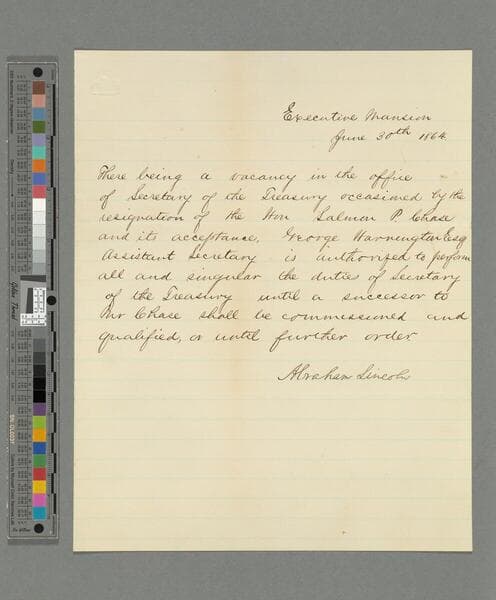 Executive Mansion
June 30th 1864.
There being a vacancy in the office
of Secretary of the Treasury occasioned by the
resignation of the Hon Salmon P. Chase
and its acceptance, George Harrington Esq
Assistant Secretary is authorized to perform
all and singular the duties of Secretary
of the Treasury until a successor to
Mr Chase shall be commissioned and
qualified, or until further order.
Abraham Lincoln
Golden Thread